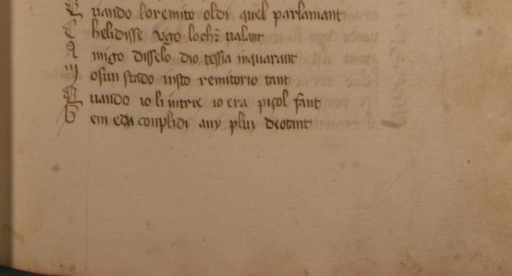 Quando loremito oldi quel parlamant
C helidisse Ugo lochr ualant
A migo disselo dio tessia inquarant
M osun stado insto remitorio tant
Quando io li intrie io era piçol fant
B em eda conplidi any plui deotant